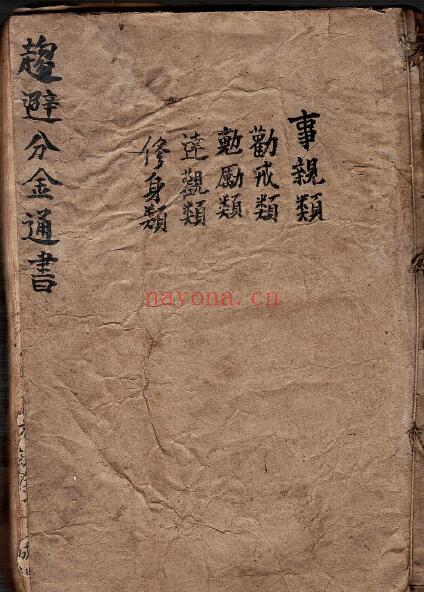 事親類
勸戒類
勲勵類
達觀類
修身類
趨避分金通書
nayona.cn